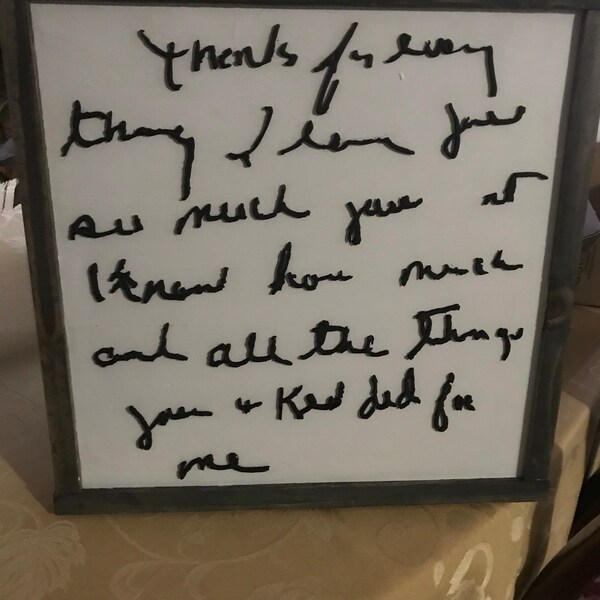 Thanks for every
thing I love you
so much you
know how much
and all the things
you + did for
me